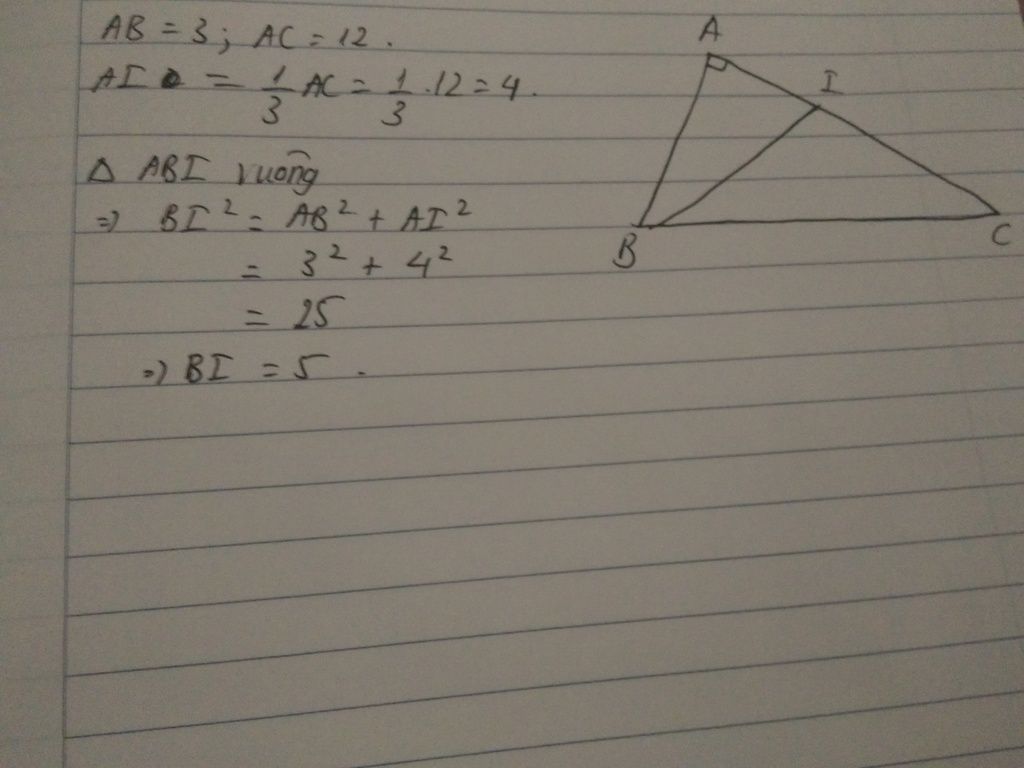 AB = 3 ; AC = 12 .
AI = 1/3 AC = 1/3 . 12 = 4 .
Δ ABI vuông
=> BI² = AB² + AI²
= 3² + 4²
= 25
=> BI = 5 .
A
I
B
C